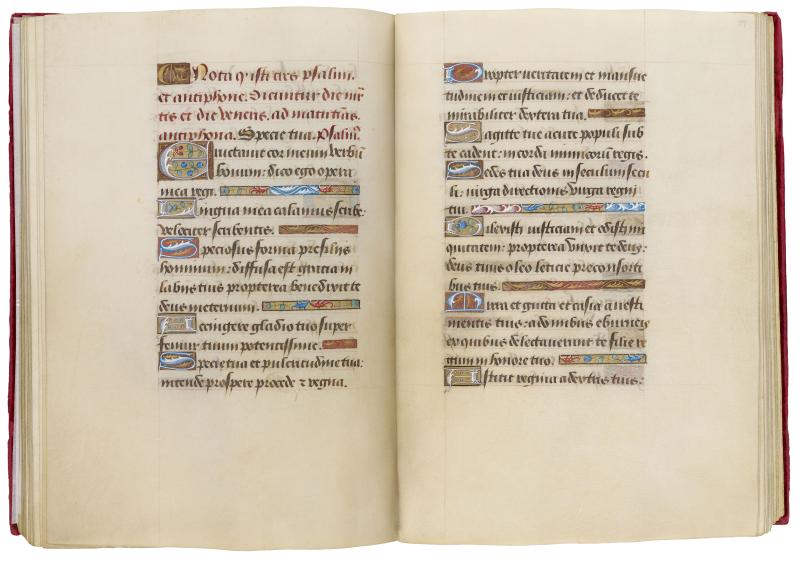 Nota qͥ isti tres psalmi.
et antiphone. Dicantur die mr̄
tis et die veneris. ad matutīas.
antiphona. Specie tua. Psalmꝰ
Eructauit cor meum verbū
bonum: dico ego opera
mea regi.
Lingua mea calamus scribe:
velociter scribentis.
Speciosus forma pre filiis
hominum: diffusa est gratia in
labiis tuis propterea benedixit te
deus ineternum.
Accingere gladio tuo super
femur tuum potentissime.
Specie tua et pulcritudine tua:
intende prospere procede ⁊ regna.
Propter veritatem et mansue
tudinem et iusticiam: et deducet te
mirabiliter dextera tua.
Sagitte tue acute populi sub
te cadent: in corda inimicorum regis.
Sedes tua deus in seculum secu
li: virga directionis virga regni
tui.
Dilexisti iusticiam et odisti ini
quitatem: propterea vnxit te deus:
deus tuus oleo leticie pre consorti
bus tuis.
Mirra et gutta et casia a vesti
mentis tuis: a domibus eburneis
ex quibus delectauerunt te filie re
gum in honore tuo.
Astitit regina a dextris tuis: